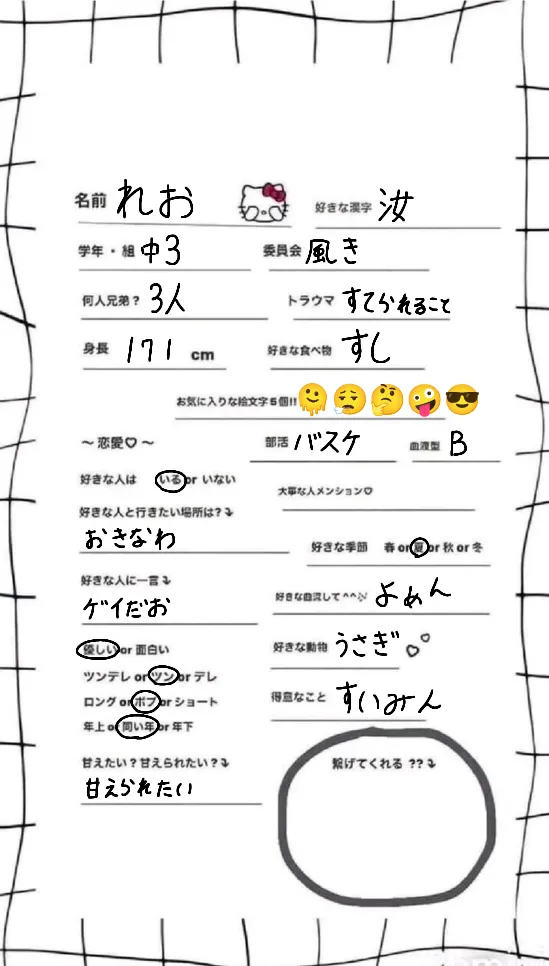 名前 れお
好きな漢字 汝
学年・組 中3
委員会 風き
何人兄弟? 3人
トラウマ すてられること
身長 171 cm
好きな食べ物 すし
お気に入りな絵文字5個!!🫠😮‍💨🤔🤪😎
〜 恋愛♡ 〜
部活 バスケ
血液型 B
好きな人は いる or いない
大事な人メンション♡
好きな人と行きたい場所は?⤵
おきなわ
好きな季節 春 or 夏 or 秋 or 冬
好きな人に一言⤵
ゲイだお
好きな曲流して^^ よめん
優しい or 面白い
好きな動物 うさぎ
ツンデレ or ツン or デレ
ロング or ボブ or ショート
得意なこと すいみん
年上 or 同い年 or 年下
甘えたい?甘えられたい?⤵
甘えられたい
繋げてくれる ??⤵